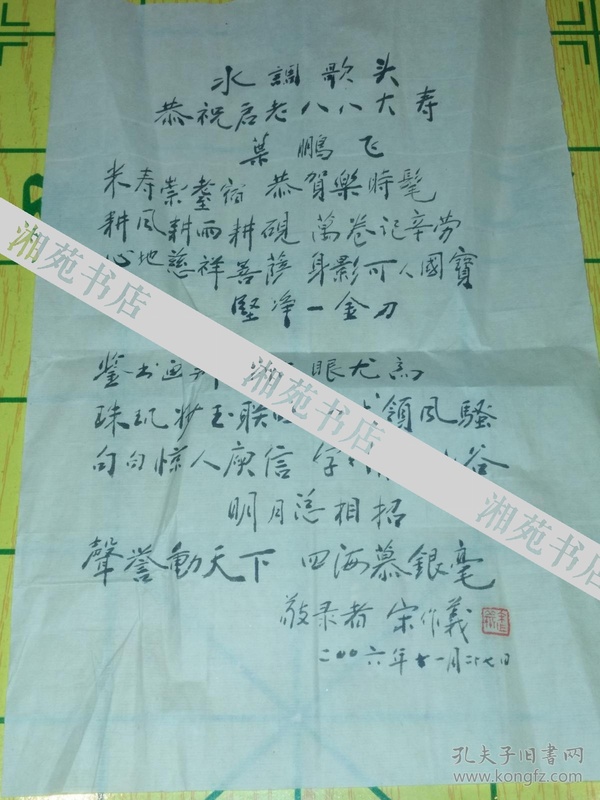 水調歌头
恭祝启老八八大寿
葉鵬飞
米寿崇耋宿 恭賀樂時髦
耕风耕雨耕硯 萬卷记辛劳
心地慈祥菩薩 身影可人國寶
堅净一金刀
鉴书画 眼尤高
珠玑妙玉联 領風騷
句句惊人庾信 字 谷
明月总相招
聲誉動天下 四海慕銀毫
敬录者 宋作義
二00六年十一月二十七日
湘苑书店
湘苑书店
湘苑书店
孔夫子旧书网
www.kongfz.com